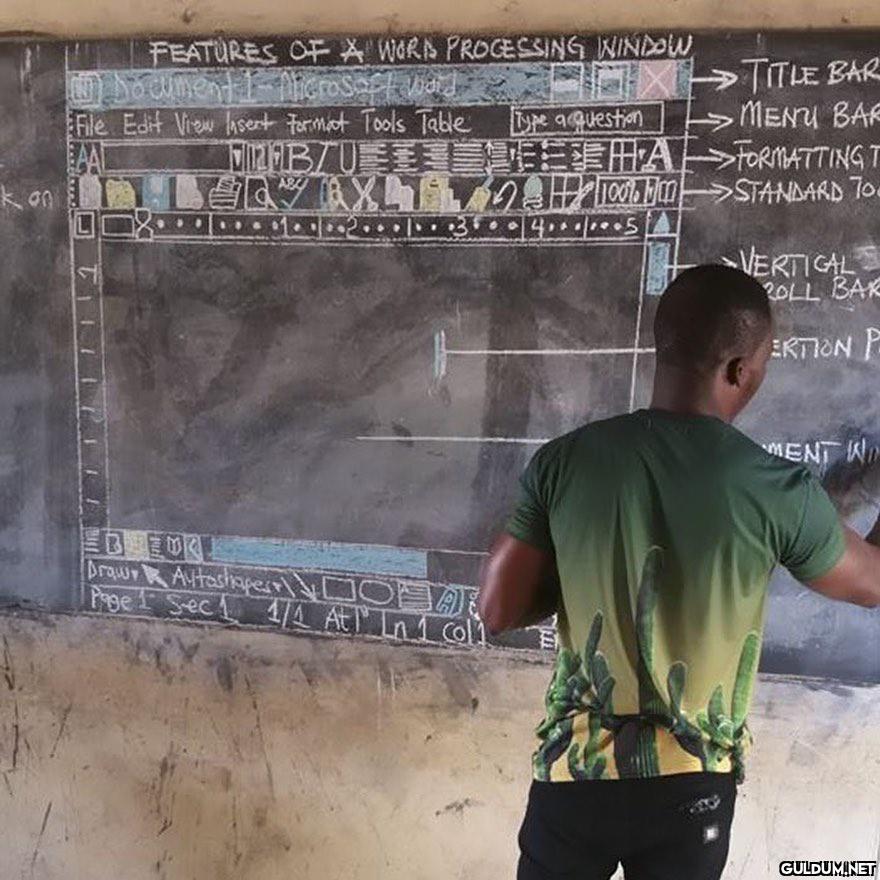 FEATURES OF A WORD PROCESSING WINDOW
Document 1 - Microsoft Word
TITLE BAR
File Edit View Insert Format Tools Table
Type a question
MENU BAR
AA
12
B I U
A
FORMATTING T
k on
ABC
100%
STANDARD TOO
L
1 2 3 4 5
VERTICAL
ROLL BAR
ERTION P
MENT WIN
Draw Autoshapes
Page 1 Sec 1 1/1 At 1" Ln 1 Col 1
GULDUM.NET